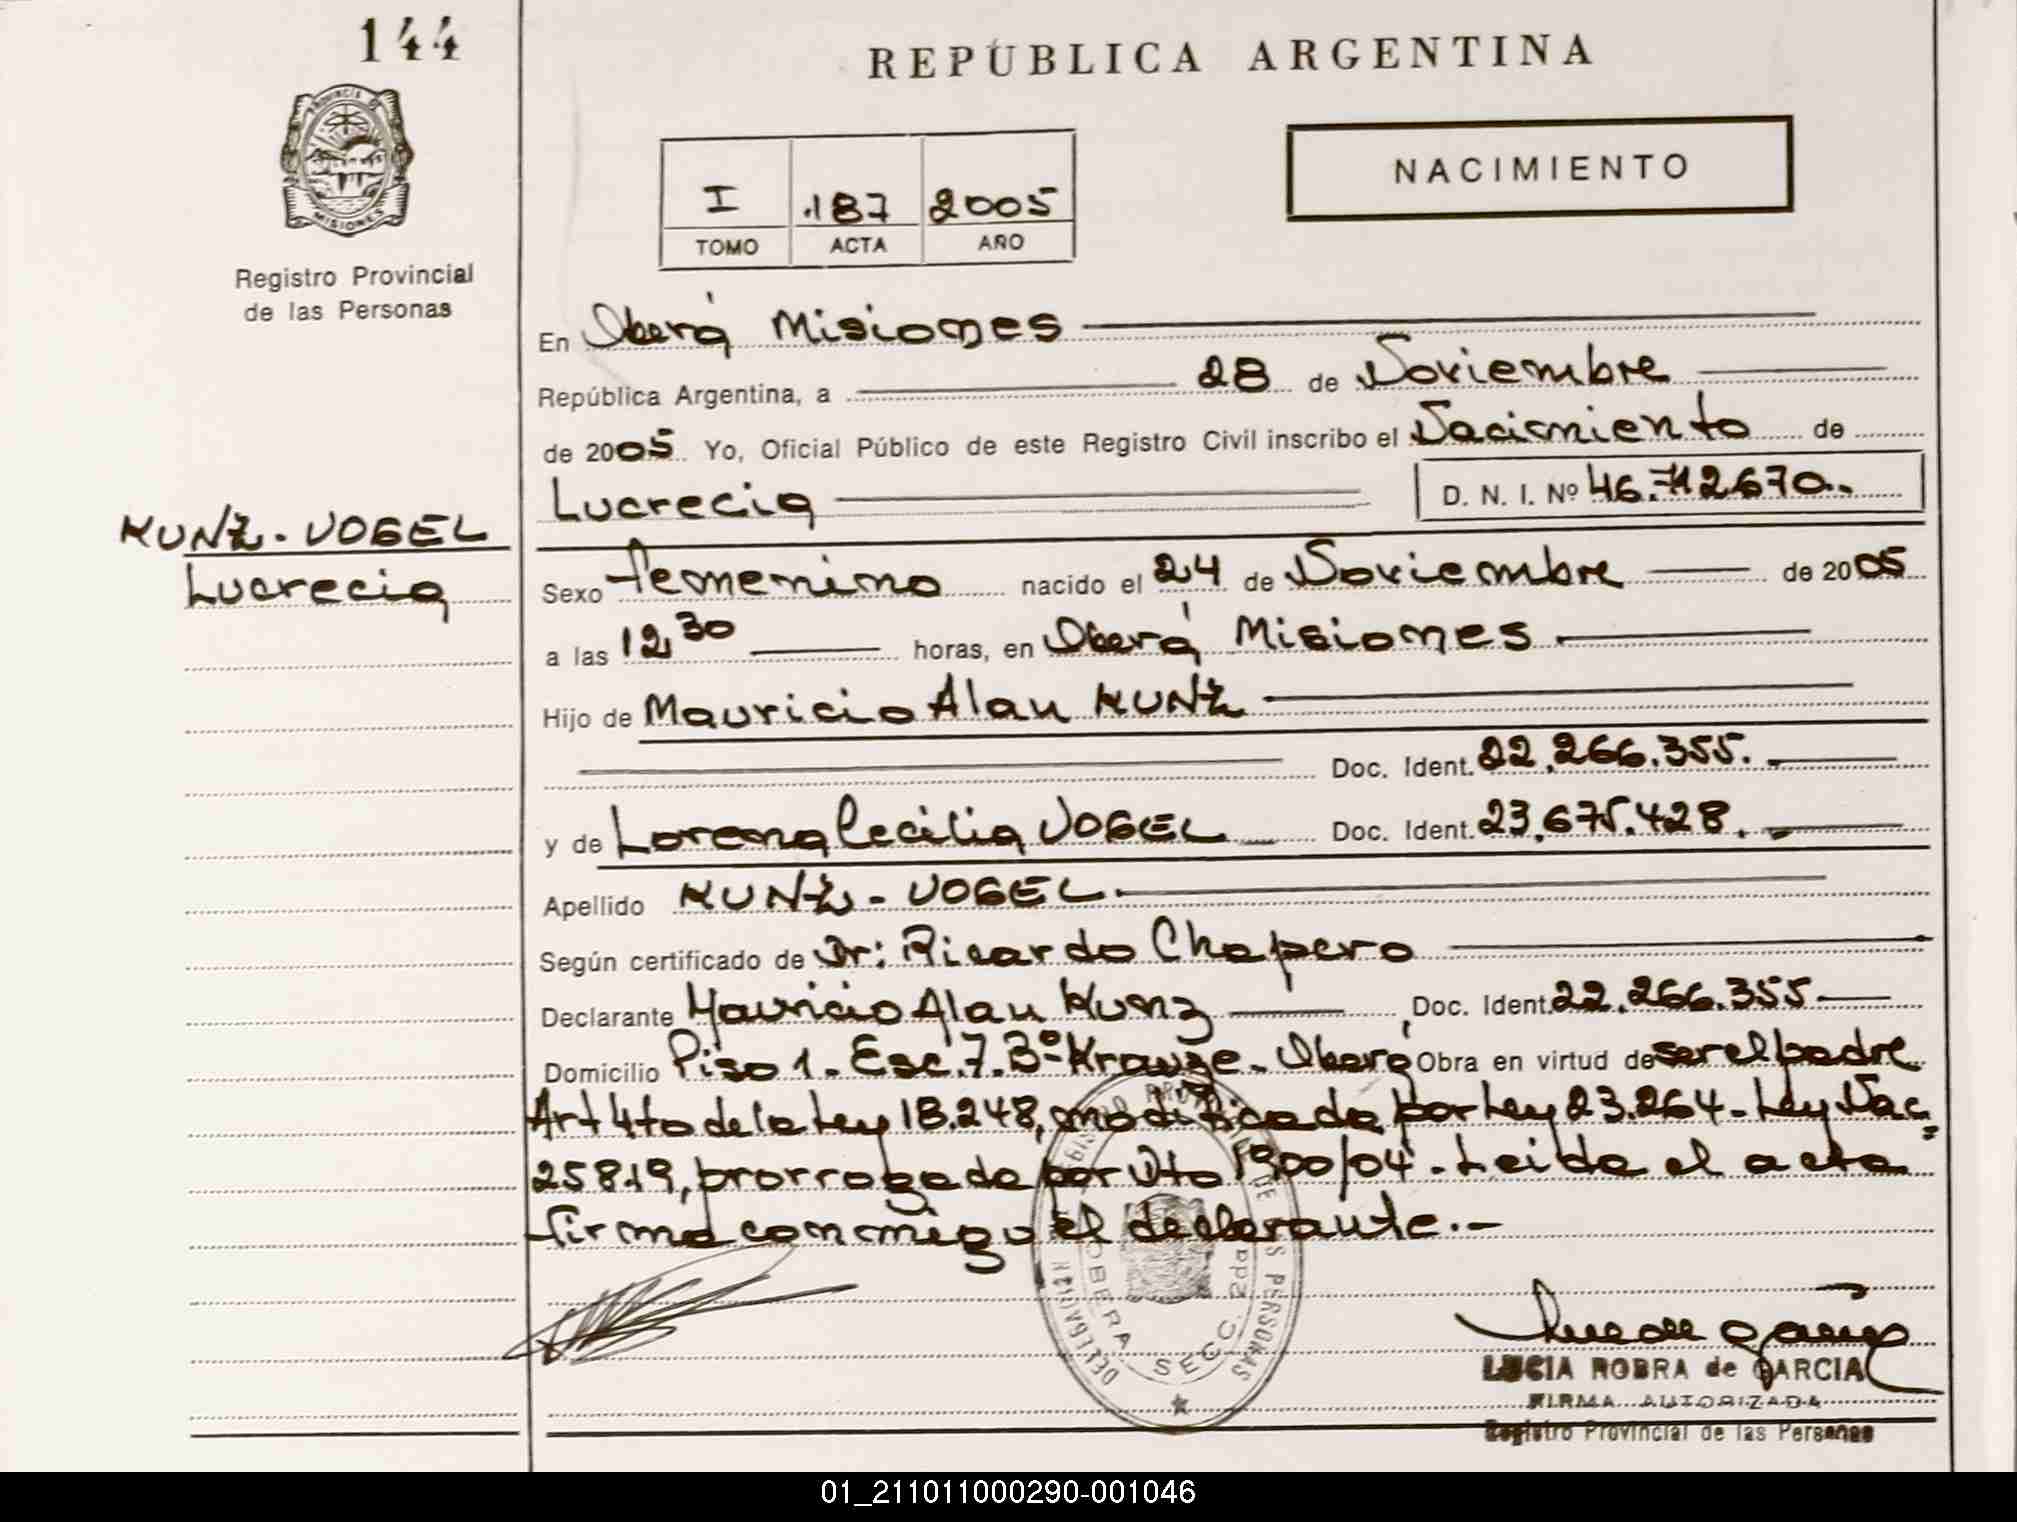 144
REPÚBLICA ARGENTINA
PROVINCIA DE
MISIONES
Registro Provincial
de las Personas
I .187 2005
TOMO ACTA AÑO
NACIMIENTO
En Oberá Misiones
República Argentina, a 28 de Noviembre
de 2005 Yo, Oficial Público de este Registro Civil inscribo el Nacimiento de
Lucrecia D. N. I. Nº 46.712670.-
KUNZ - VOGEL
Lucrecia
Sexo femenino nacido el 24 de Noviembre de 2005
a las 12,30 horas, en Oberá Misiones
Hijo de Mauricio Alan KUNZ
Doc. Ident. 22.266.355.-
y de Lorena Cecilia VOGEL Doc. Ident. 23.675.428.-
Apellido KUNZ - VOGEL.
Según certificado de Dr: Ricardo Chapero
Declarante Mauricio Alan Kunz Doc. Ident. 22.266.355
Domicilio Piso 1 - Esc. 7. Bº Krauze - Oberá Obra en virtud de ser el padre
Art 4to de la Ley 18.248, modificada por Ley 23.264 - Ley Nac.
25819, prorrogada por Dto 1900/04 - Leida el acta
firma conmigo el declarante.-
REGISTRO PROVINCIAL DE LAS PERSONAS
DELEGACION
OBERA SECC. 2da
LUCIA ROBRA de GARCIA
FIRMA AUTORIZADA
Registro Provincial de las Personas
01_211011000290-001046